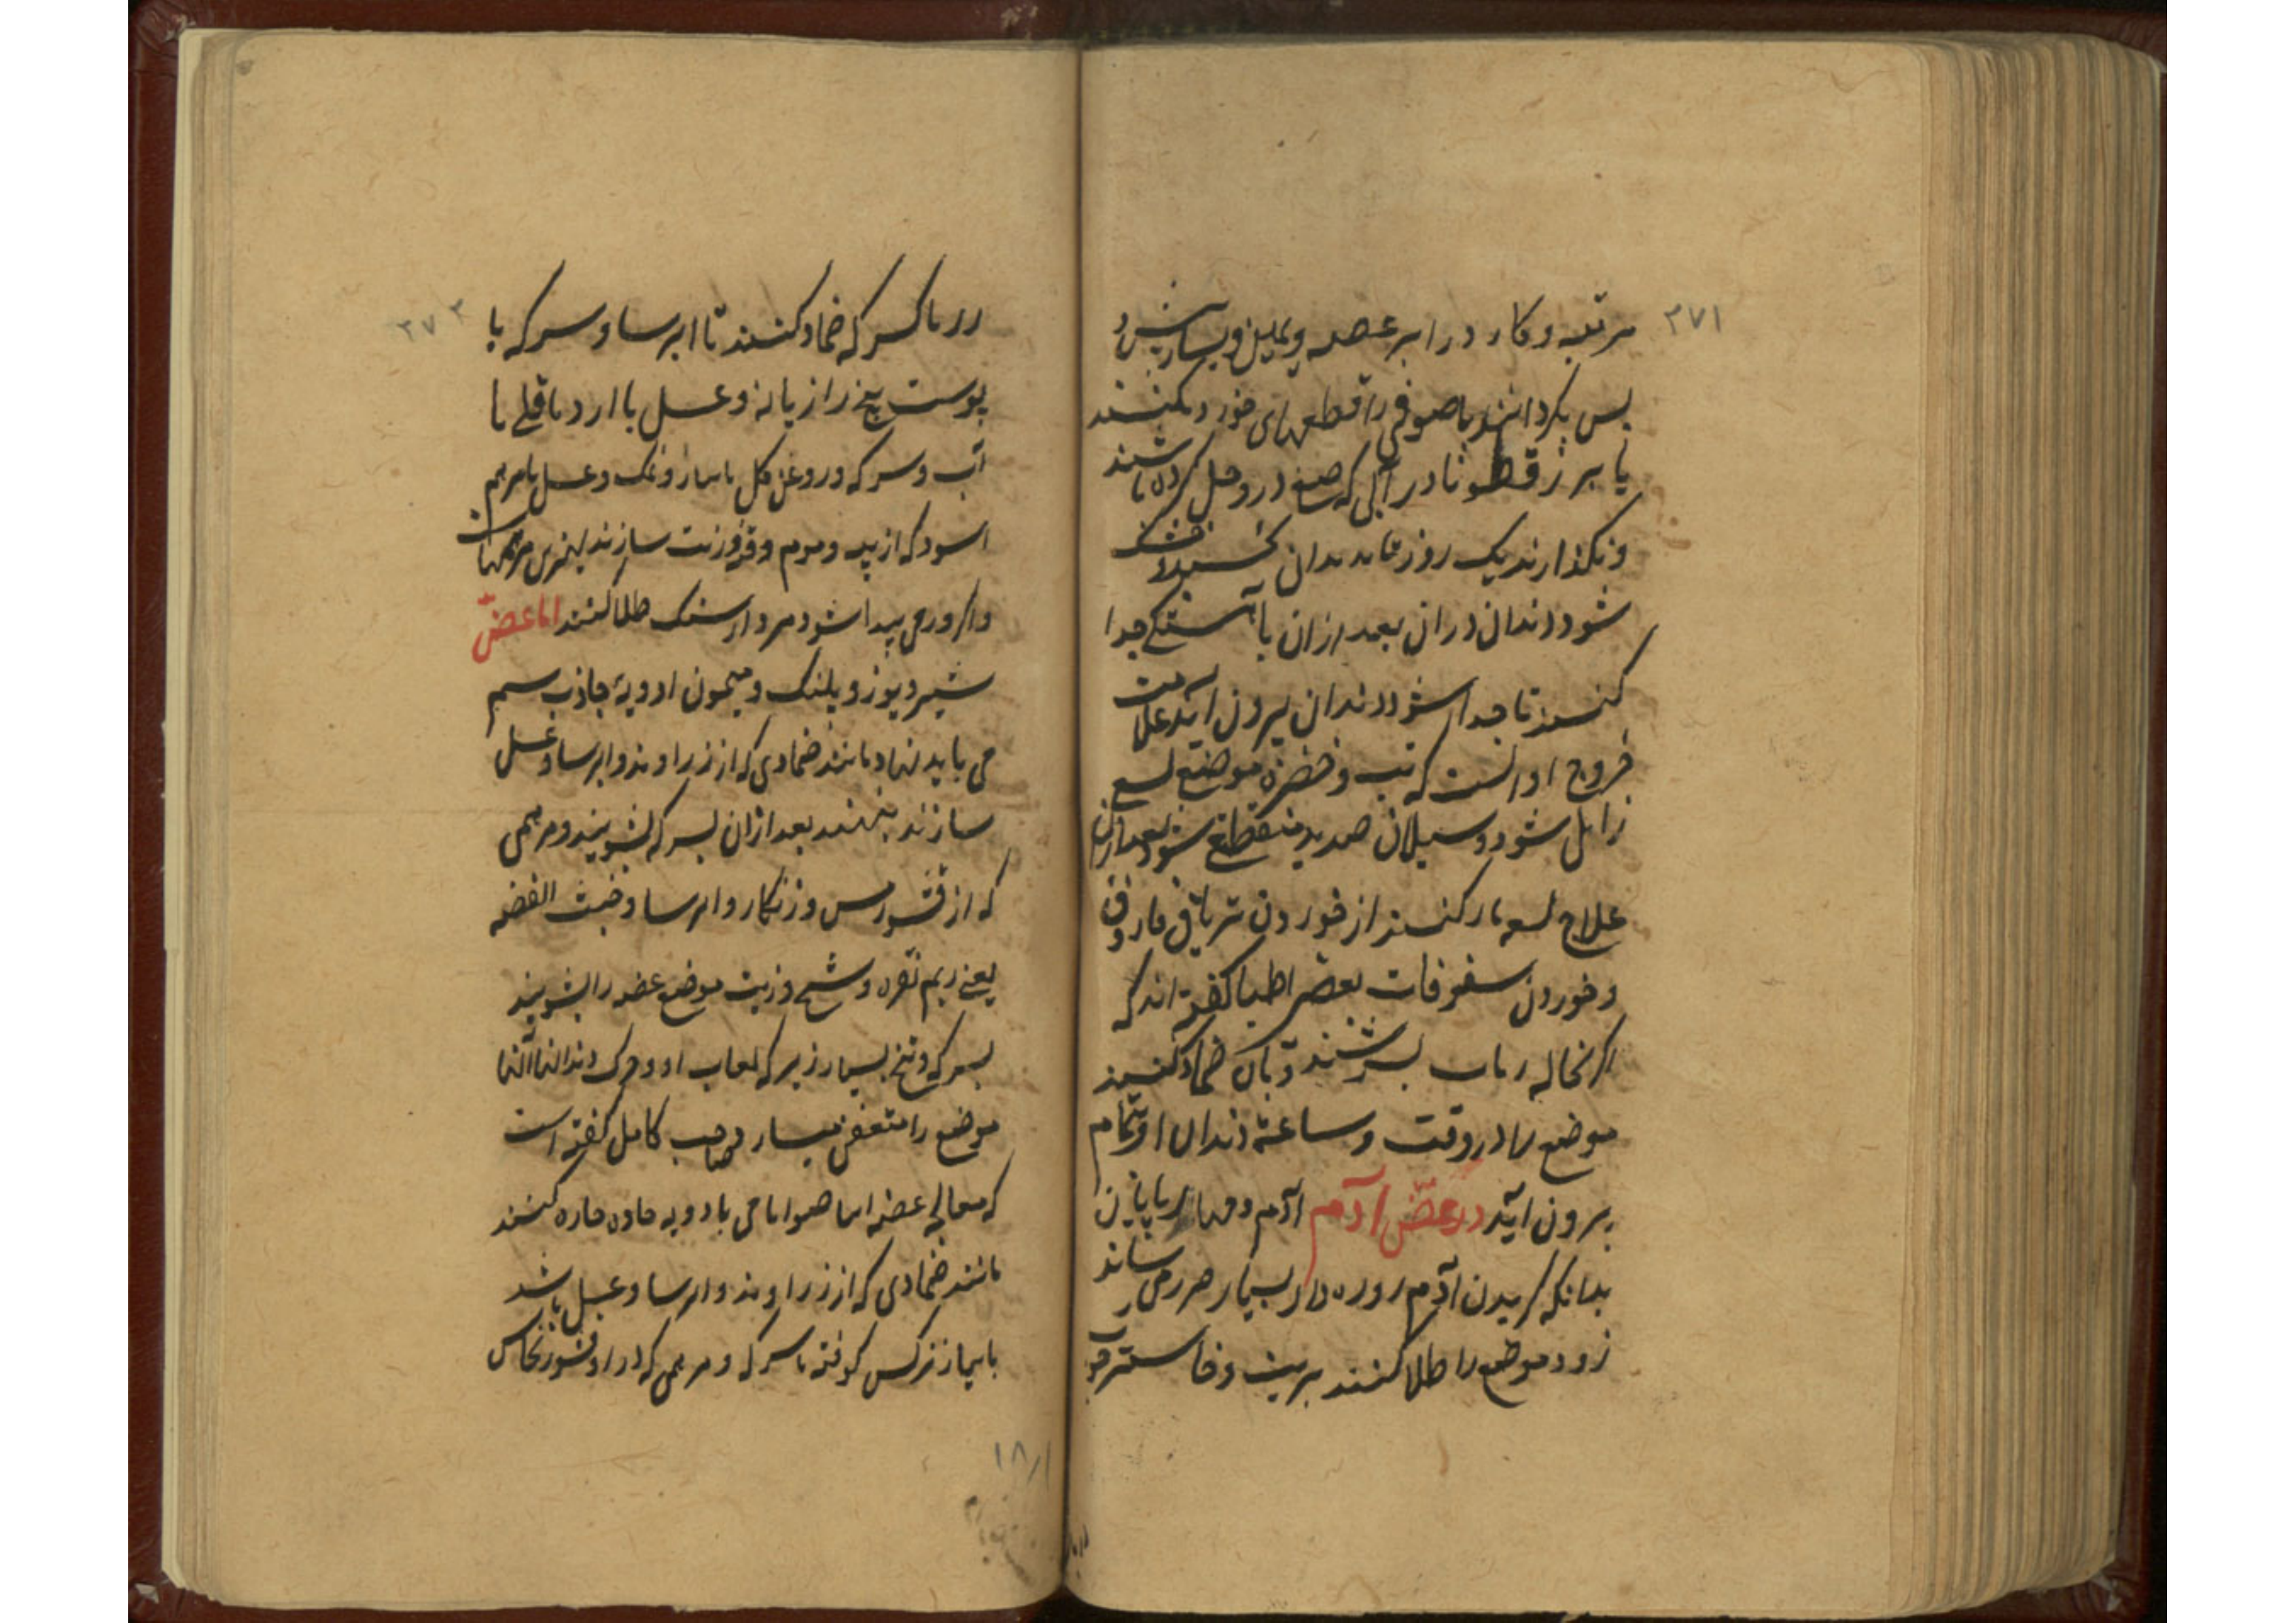 ۳۷۱
مرتبه و کار در ابر عضه ویمین و یسارش و
پس بکردانند یا صوفی را قطعهای خورد بکنند
یا بزر قطونا در آبی که صمغ در و حل کرده باشند
و بکذارند یک روز تا بدندان خشک
شود دندان دران بعد ازان باهستکی جدا
کنند تا جدا شود دندان بیرون آید علامت
خروج او انست که تب و خضرة موضع لسع
زایل شود و سیلان صدید منقطع شود بعد ازان
علاج لسعه مار کنند از خوردن تریاق فاروق
و خوردن سفوفات بعضی اطبا کفته اند که
اکر نخاله بسرشند و بان ضماد کنند
موضع را در وقت و ساعة دندان او تمام
برون آید در عضّ آدم آدم
بدانکه کزیدن آدم روزه دار بسیار ضرر می رساند
زود موضع را طلا کنند بزیت و خاکستر چوب
۳۷۲
رز با سرکه ضماد کنند تا ایرسا و سرکه با
پوست بیخ رازیانه و عسل یا ارد باقلی با
آب و سرکه و روغن کل یا پیاز و نمک و عسل یا مرهم
اسود که از پیه و موم و قفر و زیت سازند بهترین مرهمهاست
و اکر ورمی پیدا شود مردارسنک طلا کنند اما عضّ
شیر و یوز و پلنک و میمون ادویهٔ جاذب سم
می باید نهاد مانند ضمادی که از زراوند و ایرسا و عسل
سازند بنهند بعد ازان بسرکه بشویند و مرهمی
که از قشور مس و زنکار و ایرسا و خبث الفضه
یعنی ریم نقره و شمع و زیت موضع عضه را بشویند
بسرکه و نمک بسیار زیرکه لعاب او و چرک دندانها آنها
موضع را متعفن میسازد صاحب کامل کفته است
که معالجه عضه اینها هوامامی بادویه حاده حاره کنند
مانند ضمادی که از زراوند و ایرسا و عسل باشد
با پیاز نرکس کوفته با سرکه و مرهمی که در او قشور نحاس
۱۸۱